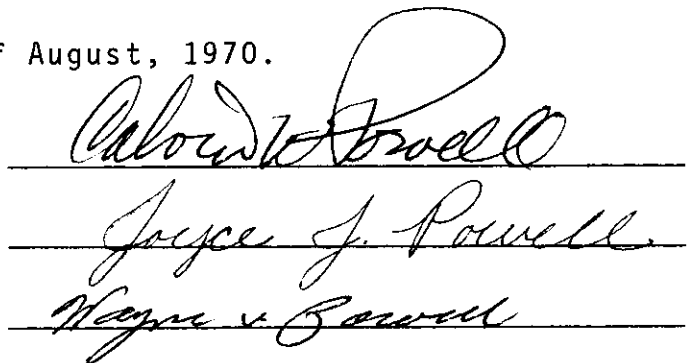 f August, 1970.
Calvin W Powell
Joyce J. Powell
Wayne v Powell